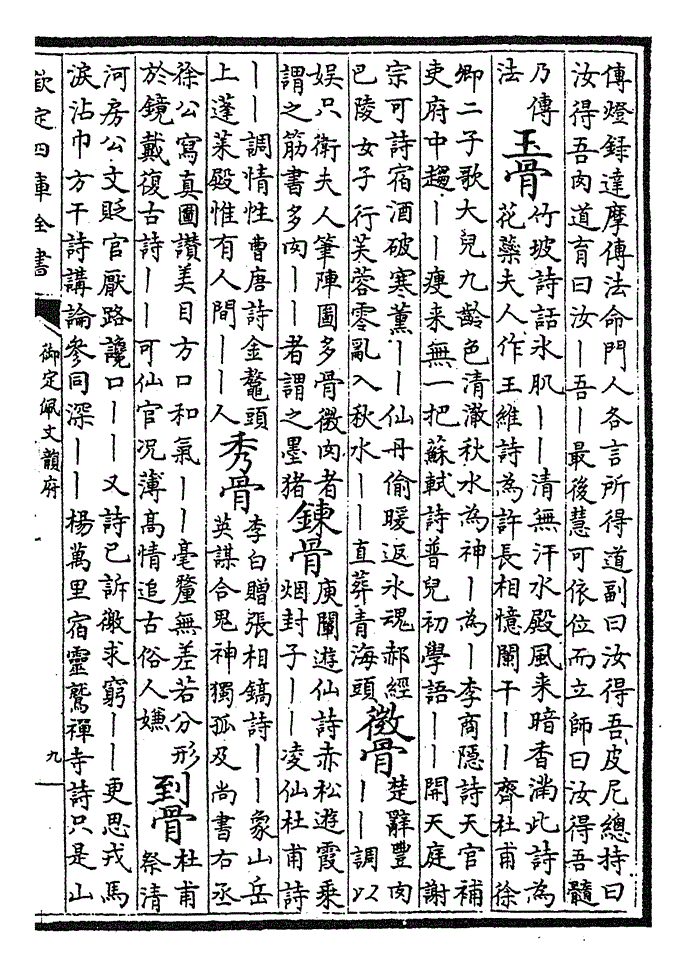 傳燈録達摩傳法命門人各言所得道副曰汝得吾皮尼總持曰
汝得吾肉道育曰汝丨吾丨最後慧可依位而立師曰汝得吾髓
乃傳
法
玉骨
竹坡詩話氷肌丨丨清無汗水殿風来暗香滿此詩為
花蘂夫人作王維詩為許長相憶闌干丨丨齊杜甫徐
卿二子歌大兒九齡色清澈秋水為神丨為丨李商隱詩天官補
吏府中趨丨丨瘦来無一把蘇軾詩普兒初學語丨丨開天庭謝
宗可詩宿酒破寒薰丨丨仙丹偷暖返氷魂郝經
巴陵女子行芙蓉零亂入秋水丨丨直葬青海頭
微骨
楚辭豐肉
丨丨調以
娱只衛夫人筆陣圖多骨微肉者
謂之筋書多肉丨丨者謂之墨猪
鍊骨
庾闡遊仙詩赤松遊霞乗
烟封子丨丨凌仙杜甫詩
丨丨調情性曹唐詩金鼇頭
上蓬莱殿惟有人間丨丨人
秀骨
李白贈張相鎬詩丨丨象山岳
英謀合鬼神獨孤及尚書右丞
徐公寫真圖讚美目方口和氣丨丨毫釐無差若分形
於鏡戴復古詩丨丨可仙官况薄高情追古俗人嫌
到骨
杜甫
祭清
河房公文貶官厭路讒口丨丨又詩已訴徴求窮丨丨更思戎馬
淚沾巾方干詩講論參同深丨丨楊萬里宿靈鷲禪寺詩只是山
欽定四庫全書
御定佩文韻府
九